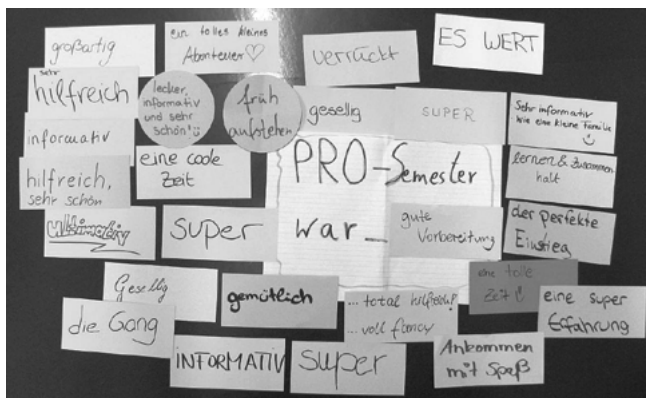 großartig
ein tolles kleines
Abenteuer♡
verrückt
ES WERT
sehr
hilfreich
lecker,
informativ
und sehr
schön!
früh
aufstehen
gesellig
SUPER
Sehr informativ
Wie eine kleine Familie
informativ
eine coole
Zeit
PRO-Semester
war_
lernen & Zusammen
halt
hilfreich,
sehr schön
ultimativ
super
gute
Vorbereitung
der perfekte
Einstieg
Gesellig
gemütlich
... total hilfreich!
... voll fancy
eine tolle
Zeit
eine super
Erfahrung
die Gang
INFORMATIV
super
Ankommen
mit Spaß